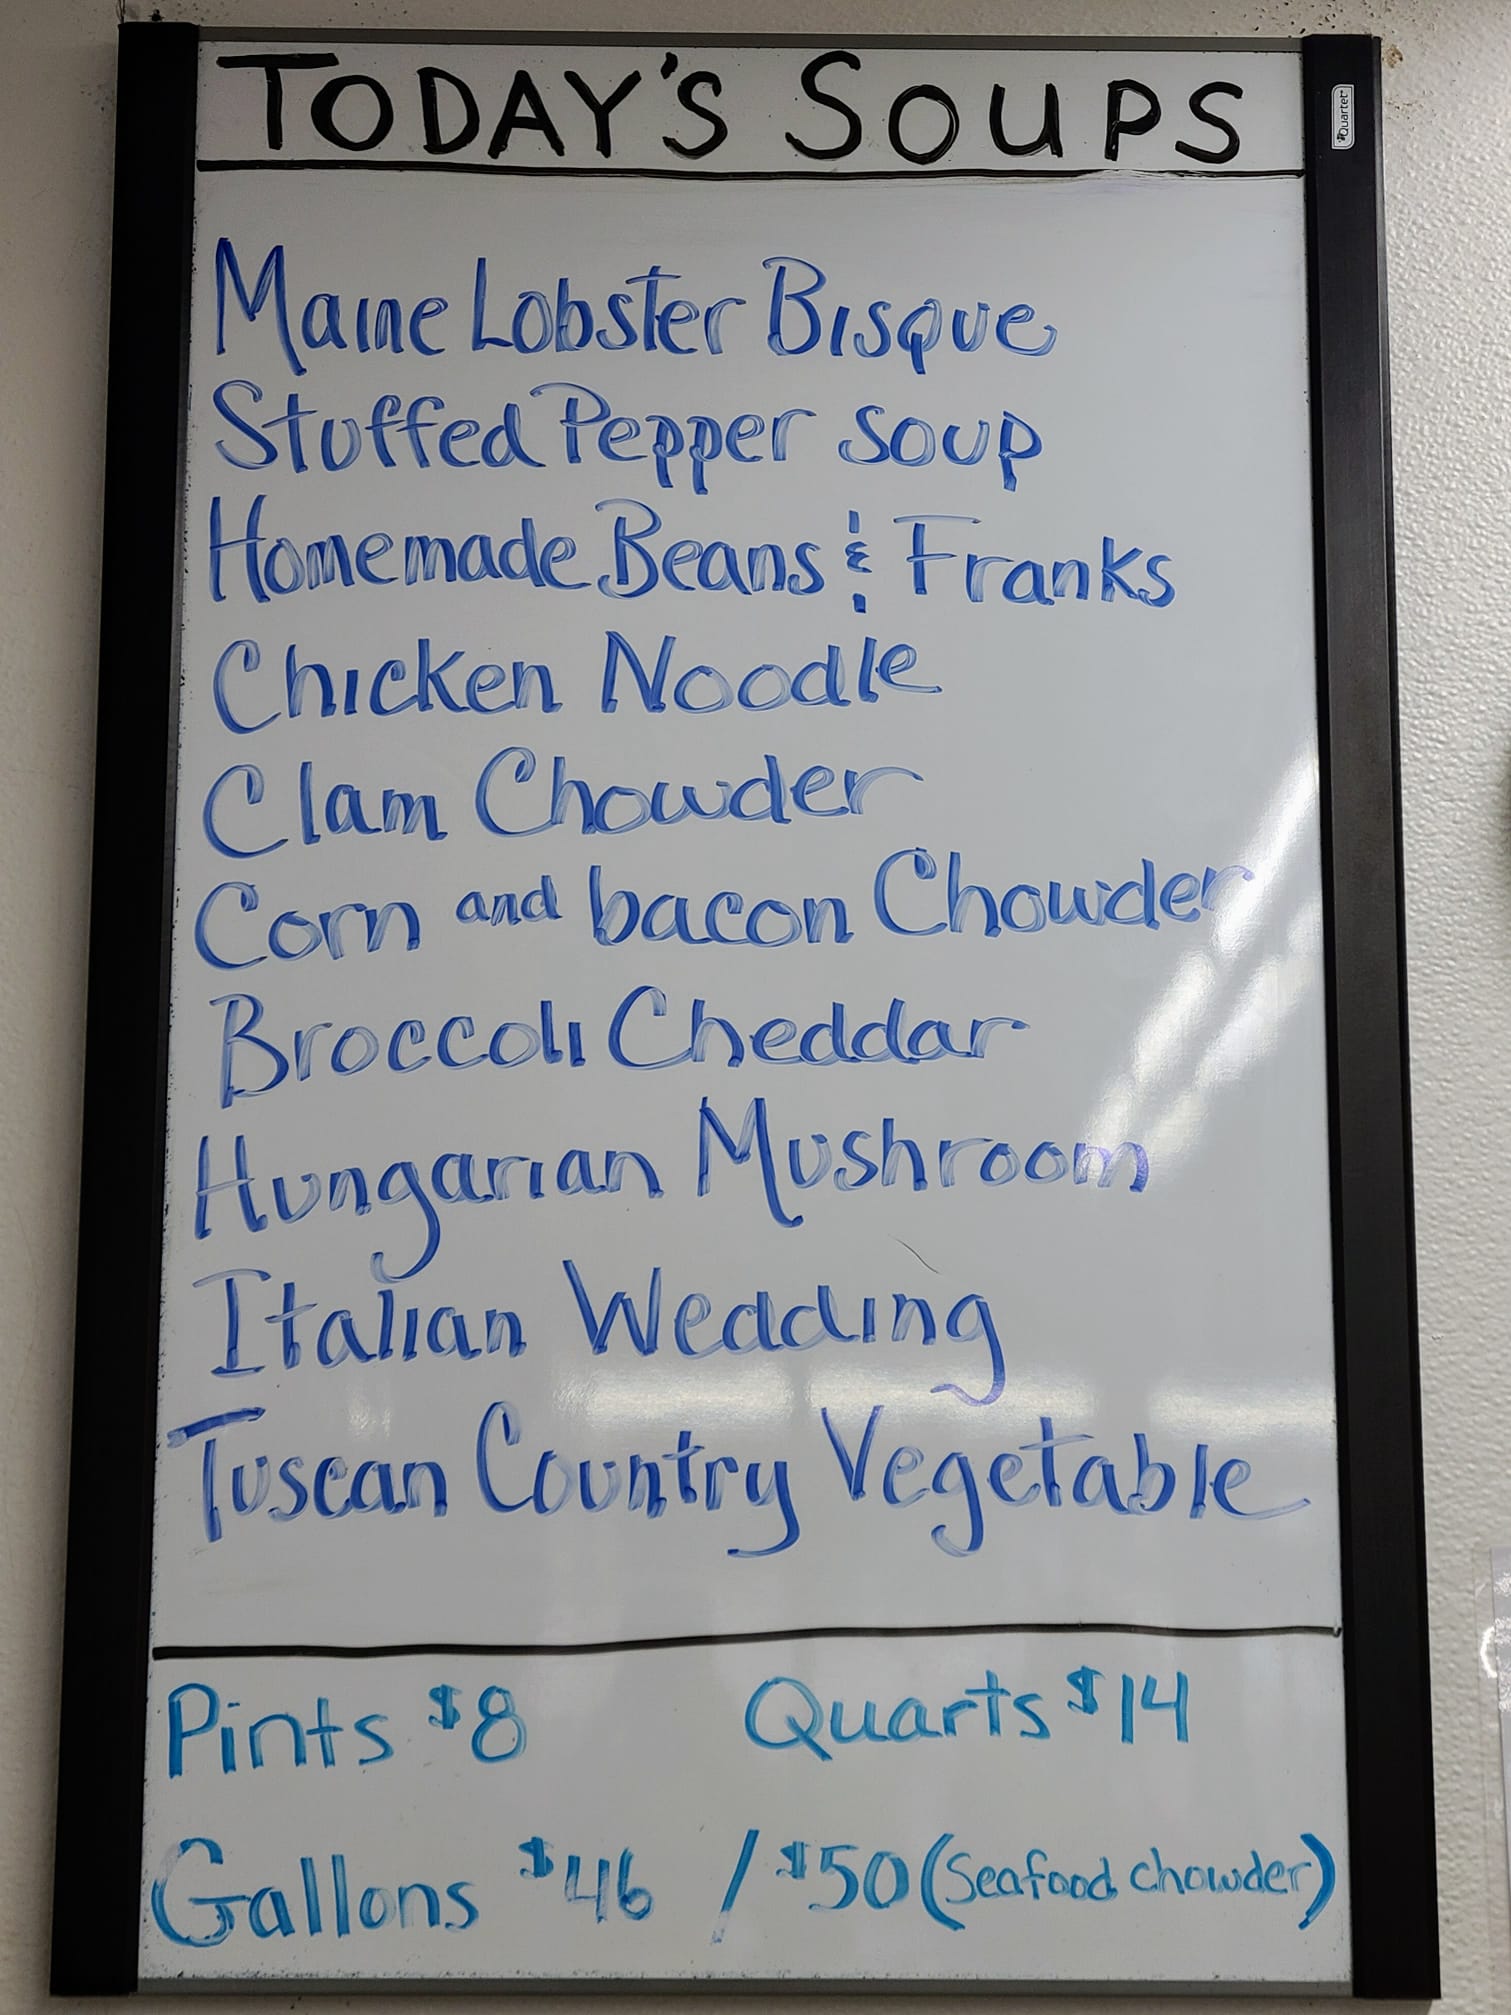 TODAY'S SOUPS
Quartet
Maine Lobster Bisque
Stuffed Pepper soup
Homemade Beans & Franks
Chicken Noodle
Clam Chowder
Corn and bacon Chowder
Broccoli Cheddar
Hungarian Mushroom
Italian Wedding
Tuscan Country Vegetable
Pints $8 Quarts $14
Gallons $46 / $50 (Seafood chowder)